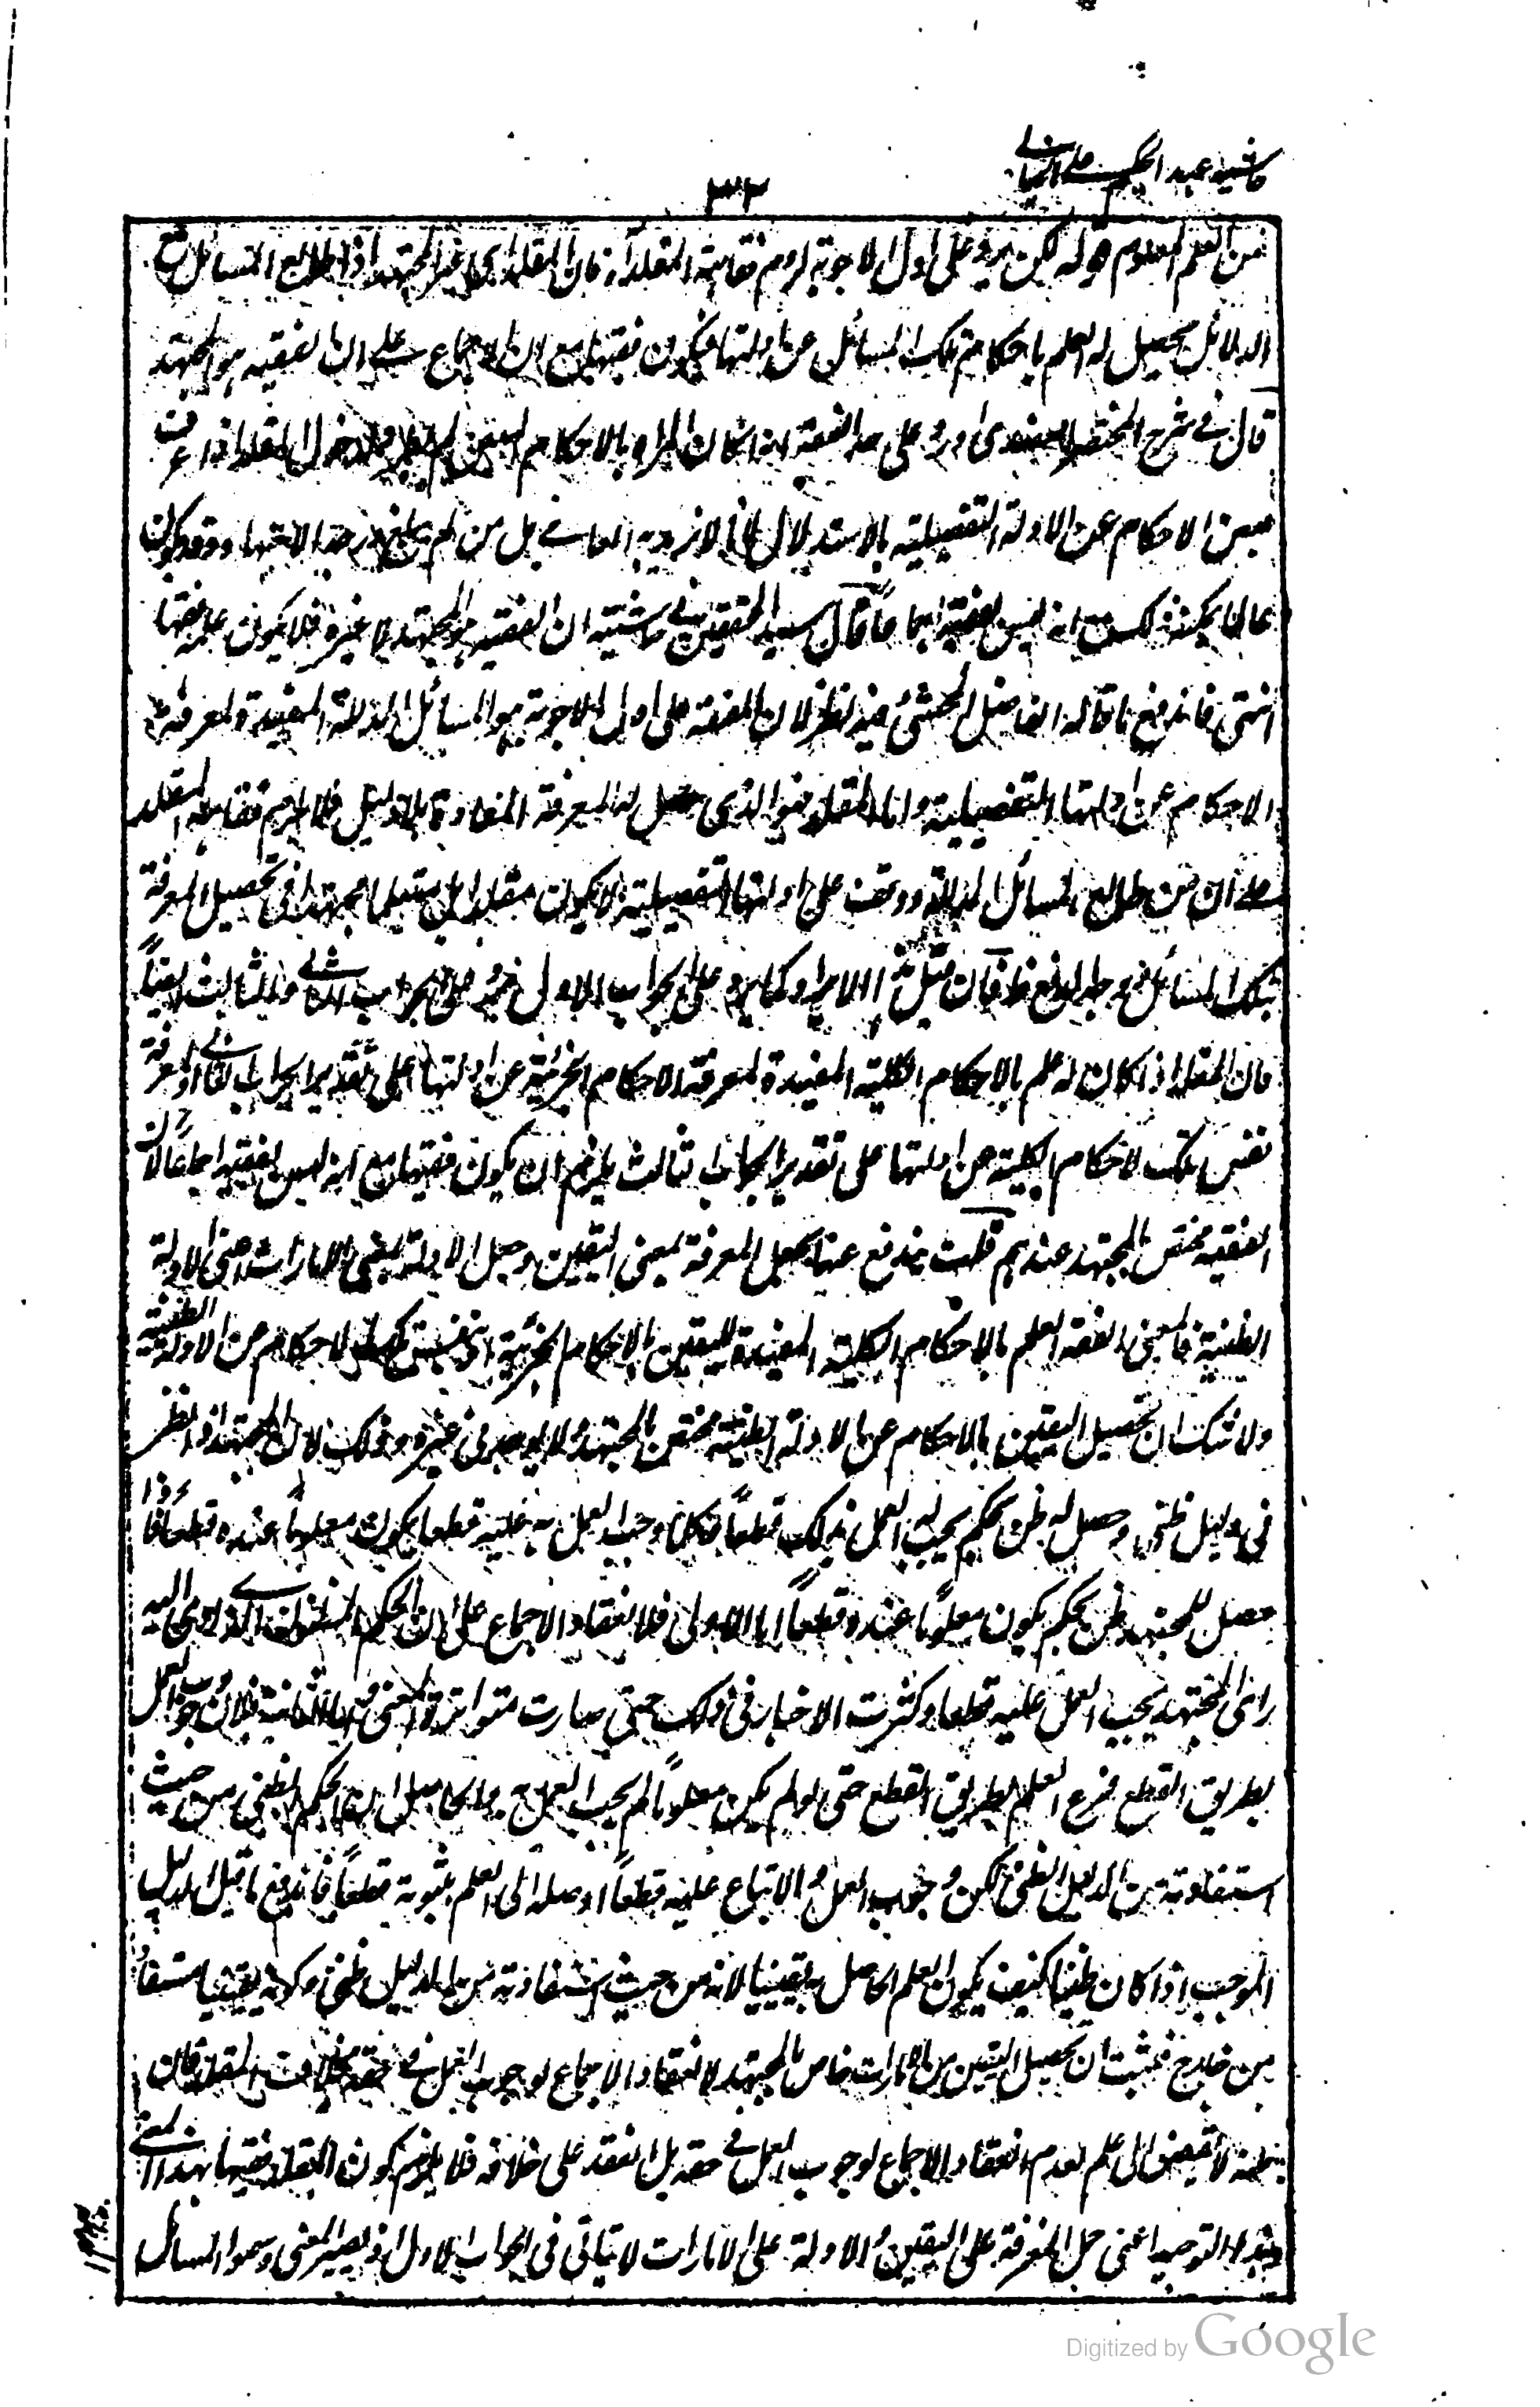 حاشيه عبد الحكيم على الخيالے
٣٣
من العلم المعلوم قوله لكن يرد على اول الاجوبة لزوم فقاهة المقلد آه فان المقلد اى غير المجتهد اذا طالع المسائل مع
الدلائل يحصل له العلم باحكام تلك المسائل عن ادلتها فيكون فقيها مع ان الاجماع على ان الفقيه هو المجتهد
قال فے شرح المختصر العضدى اورد على حد الفقه انه ان كان المراد بالاحكام البعض لم يطرد لدخول المقلد اذا عرف
بعض الاحكام عن الادلة التفصيلية بالاستدلال لانا لا نريد به العامے بل من لم يبلغ درجة الاجتهاد وقد يكون
عالما يمكنه ذلك مع انه ليس بفقيه اجماعا قال سيد المحققين فے حاشيته ان الفقيه هو المجتهد لا غيره فلا يكون علمه فقها
انتهى فاندفع ما قاله الفاضل المحشى فيه نظر لان الفقه على اول الاجوبة هو المسائل المدللة المفيدة لمعرفة
الاحكام عن ادلتها التفصيلية واما المقلد فهو الذى حصل له المعرفة المفادة بلا دليل فلا يلزم فقاهة المقلد
على ان من طالع المسائل المدللة ووقف على ادلتها التفصيلية لا يكون مقلدا بل متعلما مجتهدا فى تحصيل المعرفة
بتلك المسائل ووجه الدفع ظ فان قيل هذا الايراد كما يرد على الجواب الاول يرد على الجواب الثانے والثالث ايضاً
فان المقلد اذا كان له علم بالاحكام الكلية المفيدة لمعرفة الاحكام الجزئية عن ادلتها على تقدير الجواب الثانے او لمعرفة
نفس تلك الاحكام الكلية عن ادلتها على تقدير الجواب الثالث يلزم ان يكون فقيها مع انه ليس بفقيه اجماعاً لان
الفقيه مختص بالمجتهد عندهم قلت يندفع عنها بجعل المعرفة بمعنى اليقين وجعل الادلة بمعنى الامارات اعنى الادلة
الظنية فالمعنى الفقه العلم بالاحكام الكلية المفيدة لليقين بالاحكام الجزئية او بنفس تلك الاحكام من الادلة الظنية
ولا شك ان تحصيل اليقين بالاحكام عن الادلة الظنية مختص بالمجتهد لا يوجد فى غيره وذلك لان المجتهد اذا نظر
فى دليل ظنى وحصل له ظن بحكم يجب له العمل بذلك قطعاً فكل ما وجب العمل به عليه قطعا يكون معلوماً عنده قطعاً فاذا
حصل للمجتهد ظن بحكم يكون معلوماً عنده قطعاً اما الاولى فلانعقاد الاجماع على ان الحكم المظنون الذى ادى اليه
راى المجتهد يجب العمل عليه قطعا وكثرت الاخبار فى ذلك حتى صارت متواترة المعنى واما الثانية فلان وجوب العمل
بطريق القطع فرع العلم بطريق القطع حتى لو لم يكن معلوماً لم يجب العمل به والحاصل ان الحكم الظنى من حيث
استفادته من الدليل الظنى لكن وجوب العمل والاتباع عليه قطعاً اوصله الى العلم بثبوته قطعاً فاندفع ما قيل الدليل
الموجب اذا كان ظنيا كيف يكون العلم الحاصل به يقينيا لانه من حيث استفادته من الدليل ظنى وكونه يقينيا مستفاد
من خارج فثبت ان تحصيل اليقين من الامارات خاص بالمجتهد لانعقاد الاجماع لوجوب العمل فے حقه بخلاف المقلد فان
ظنه لا يفضى الى علم لعدم انعقاد الاجماع لوجوب العمل فے حقه بل انعقد على خلافه فلا يلزم كون المقلد فقيها بهذا المعنے
وهذا التوجيه اعنى حمل المعرفة على اليقين والادلة على الامارات لا يتاتى فى الجواب الاول اذ يصير المعنى وسموا المسائل
Digitized by Google